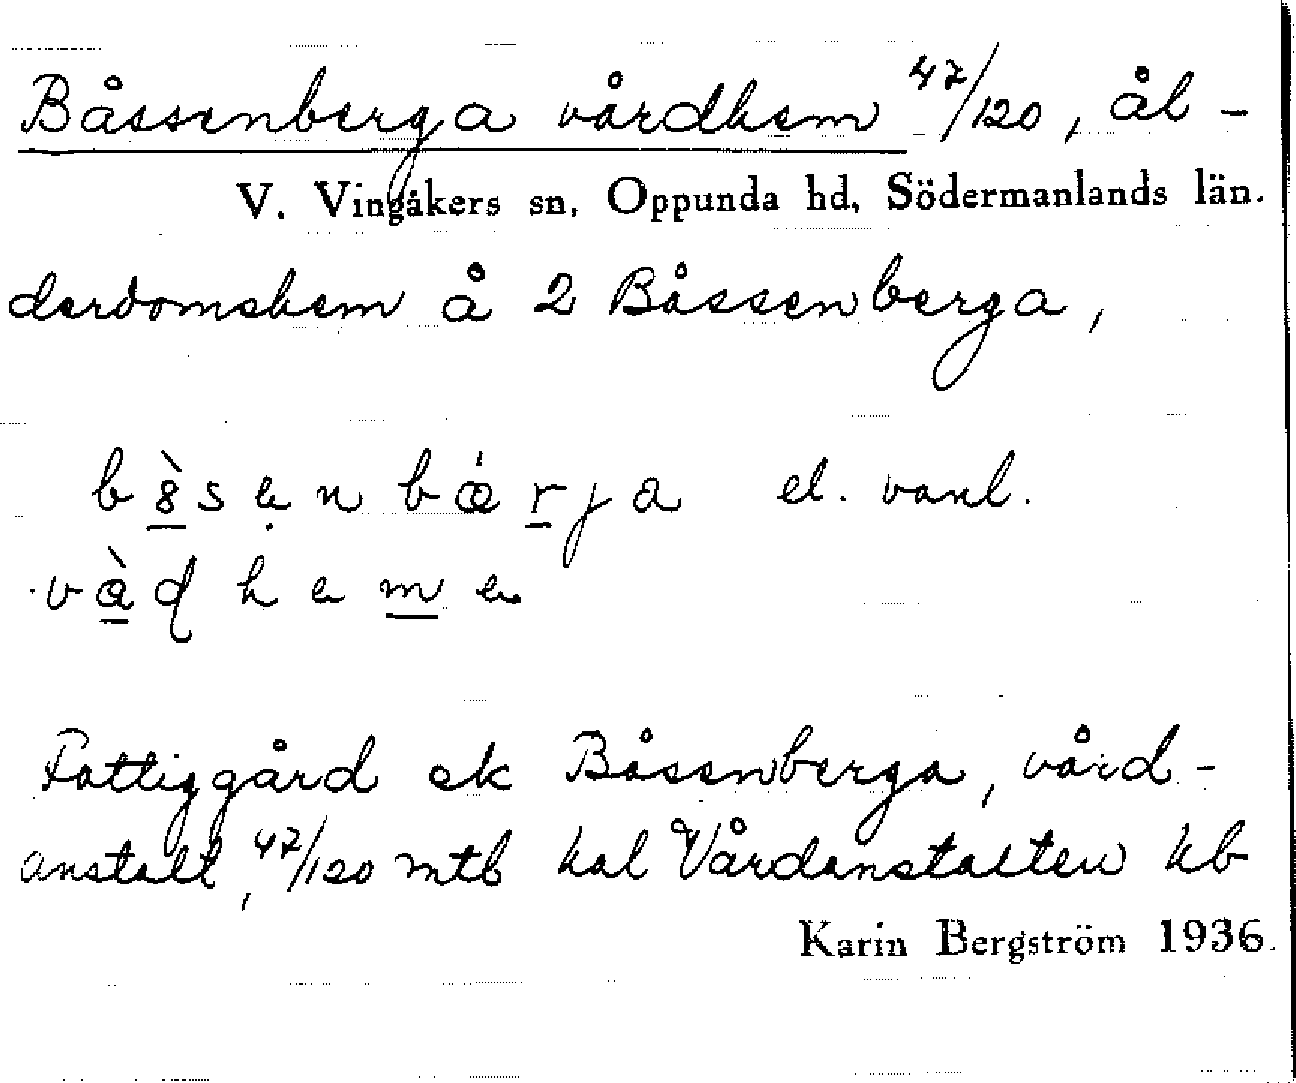 Båssenberga vårdhem 47/120, ål-
V. Vingåkers sn, Oppunda hd, Södermanlands län.
derdomshem å 2 Båssenberga,
el. vanl.
Fattiggård ek Båsenberga, vård-
anstalt, 47/120 mtb kal Vårdanstalten kb
Karin Bergström 1936.